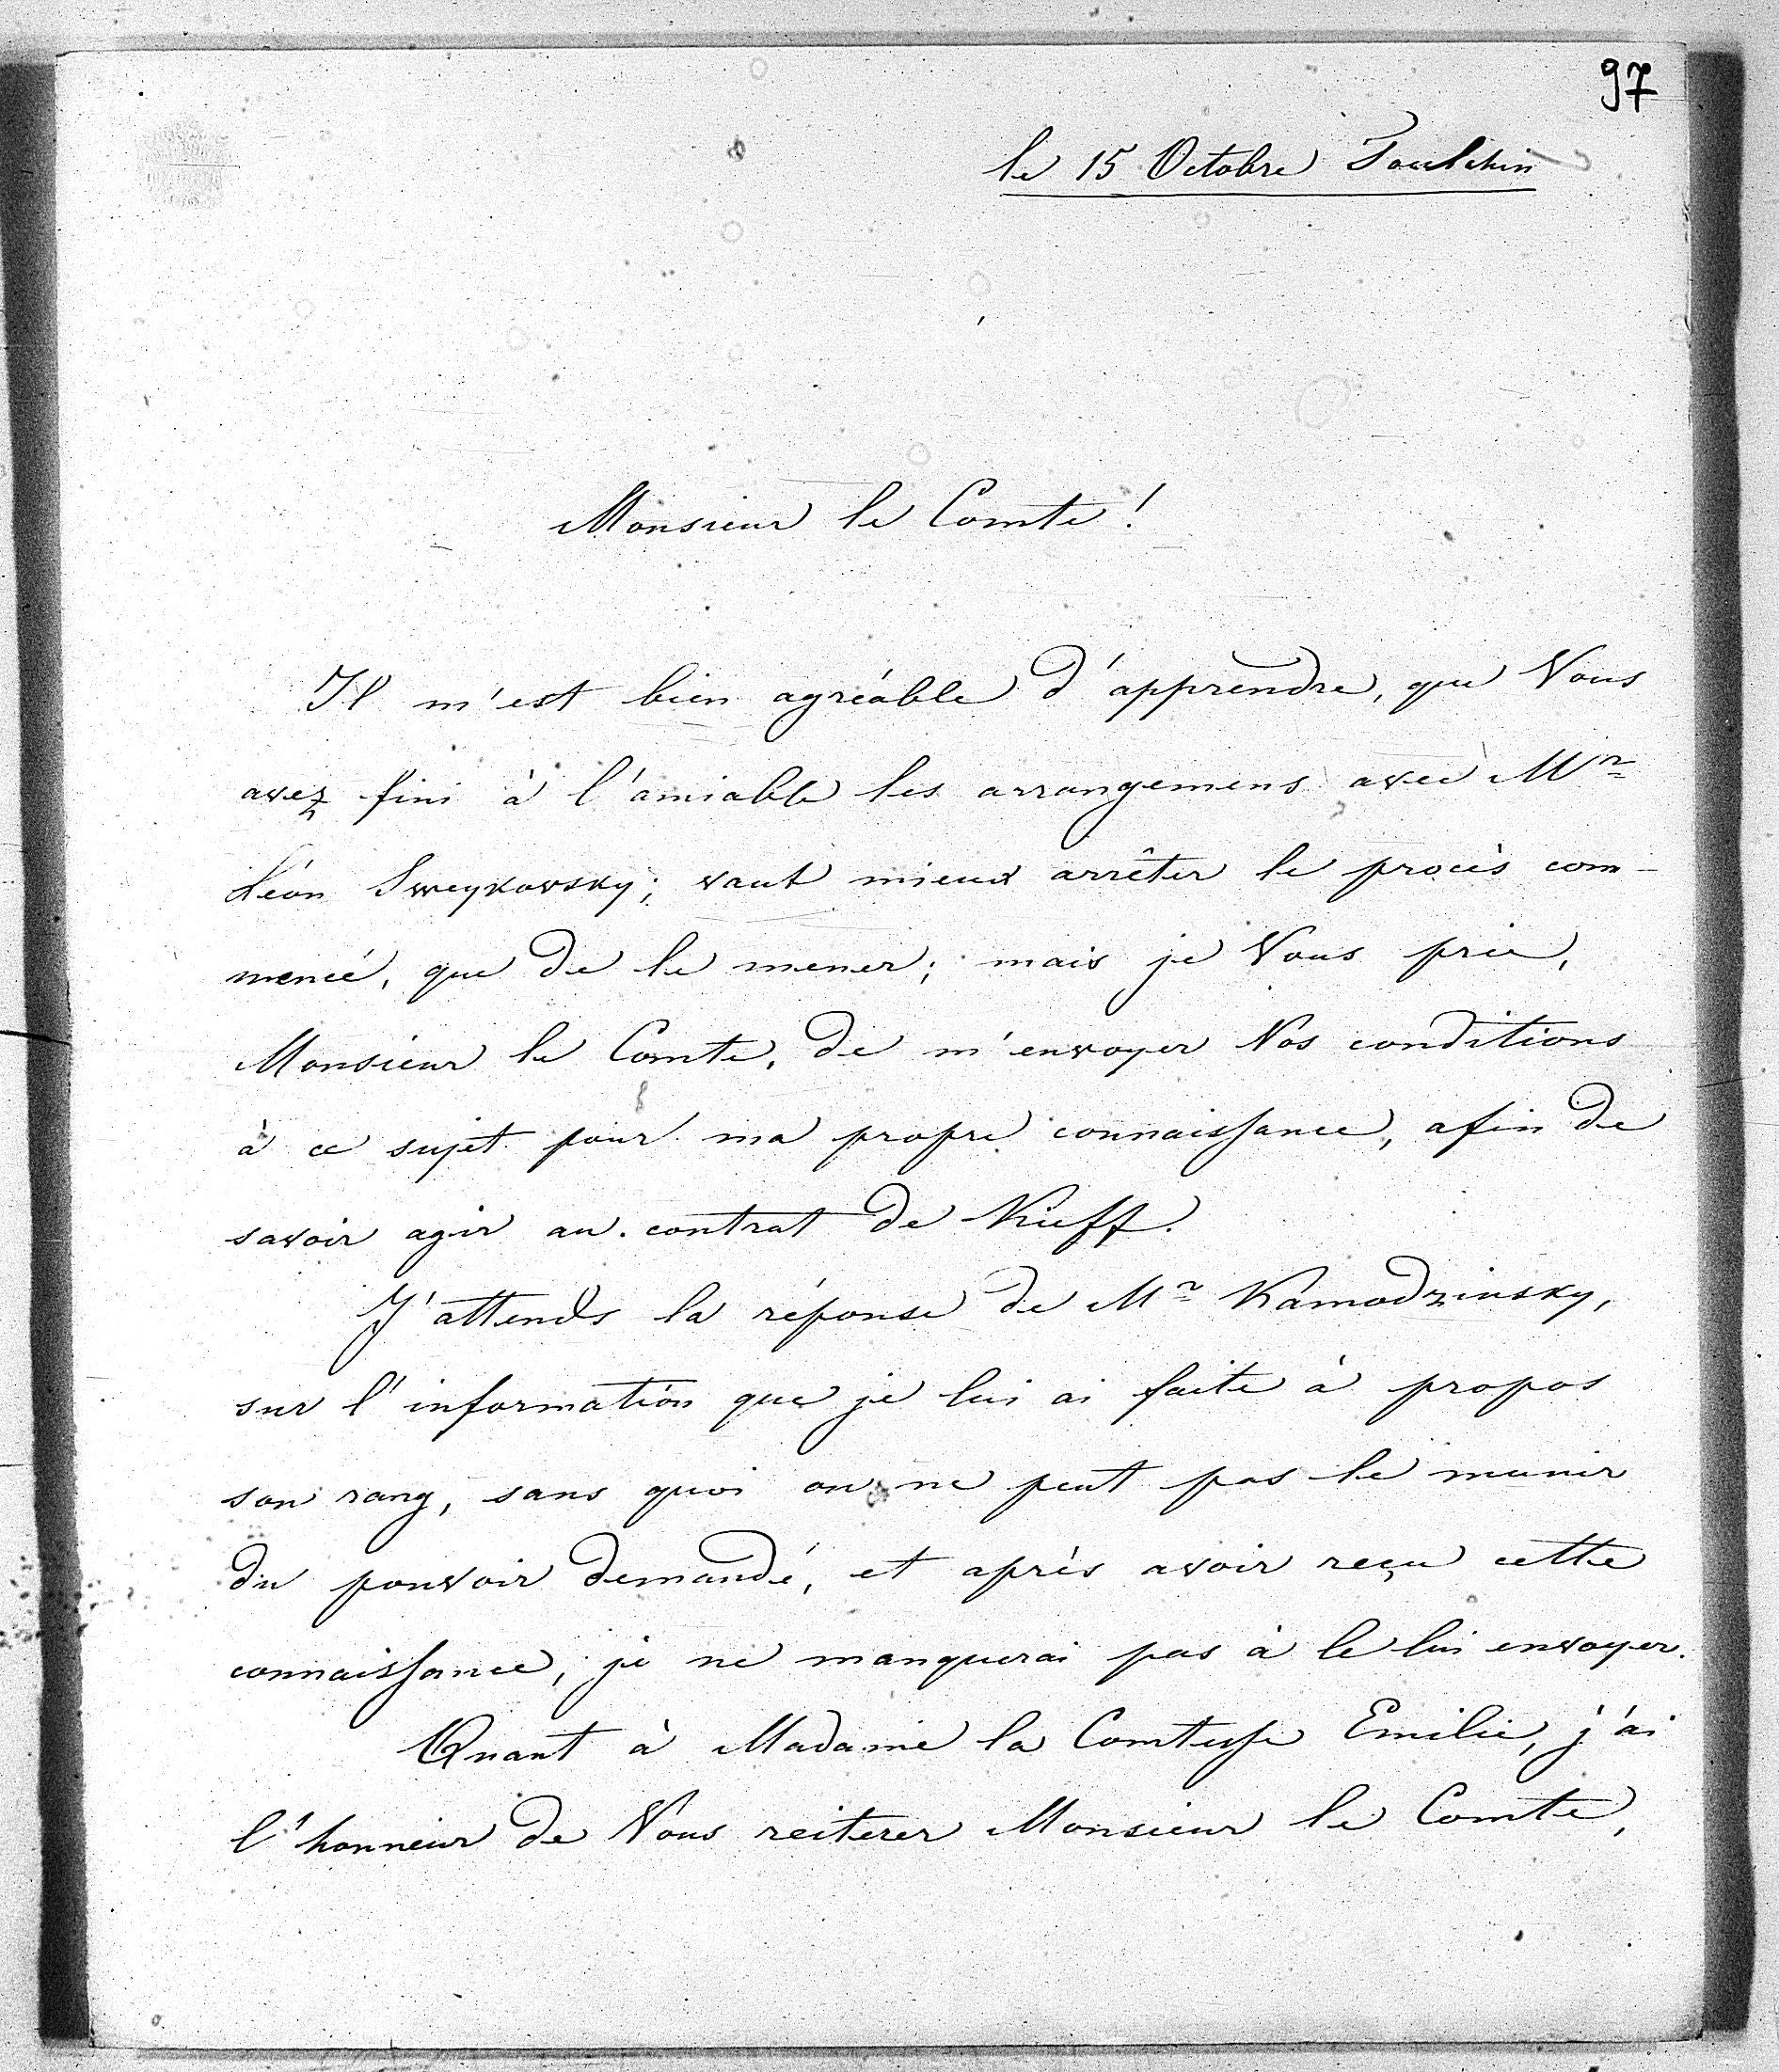 97
le 15 Octobre Toultchin
Monsieur le Comte!
Il m'est bien agréable d'apprendre, que Vous
avez fini à l'amiable les arrangemens avec Mr
Léon Sweykowsky; vaut mieux arrêter le procès com-
mencé, que de le mener; mais je Vous prie,
Monsieur le Comte, de m'envoyer Vos conditions
à ce sujet pour ma propre connaissance, afin de
savoir agir au contrat de Kieff.
J'attends la réponse de Mr Kamodzinsky,
sur l'information que je lui ai faite à propos
son rang, sans quoi on ne peut pas le munir
du pouvoir demandé, et après avoir reçu cette
connaissance, je ne manquerai pas à le lui envoyer.
Quant à Madame la Comtesse Emilie, j'ai
l'honneur de Vous reiterer Monsieur le Comte,